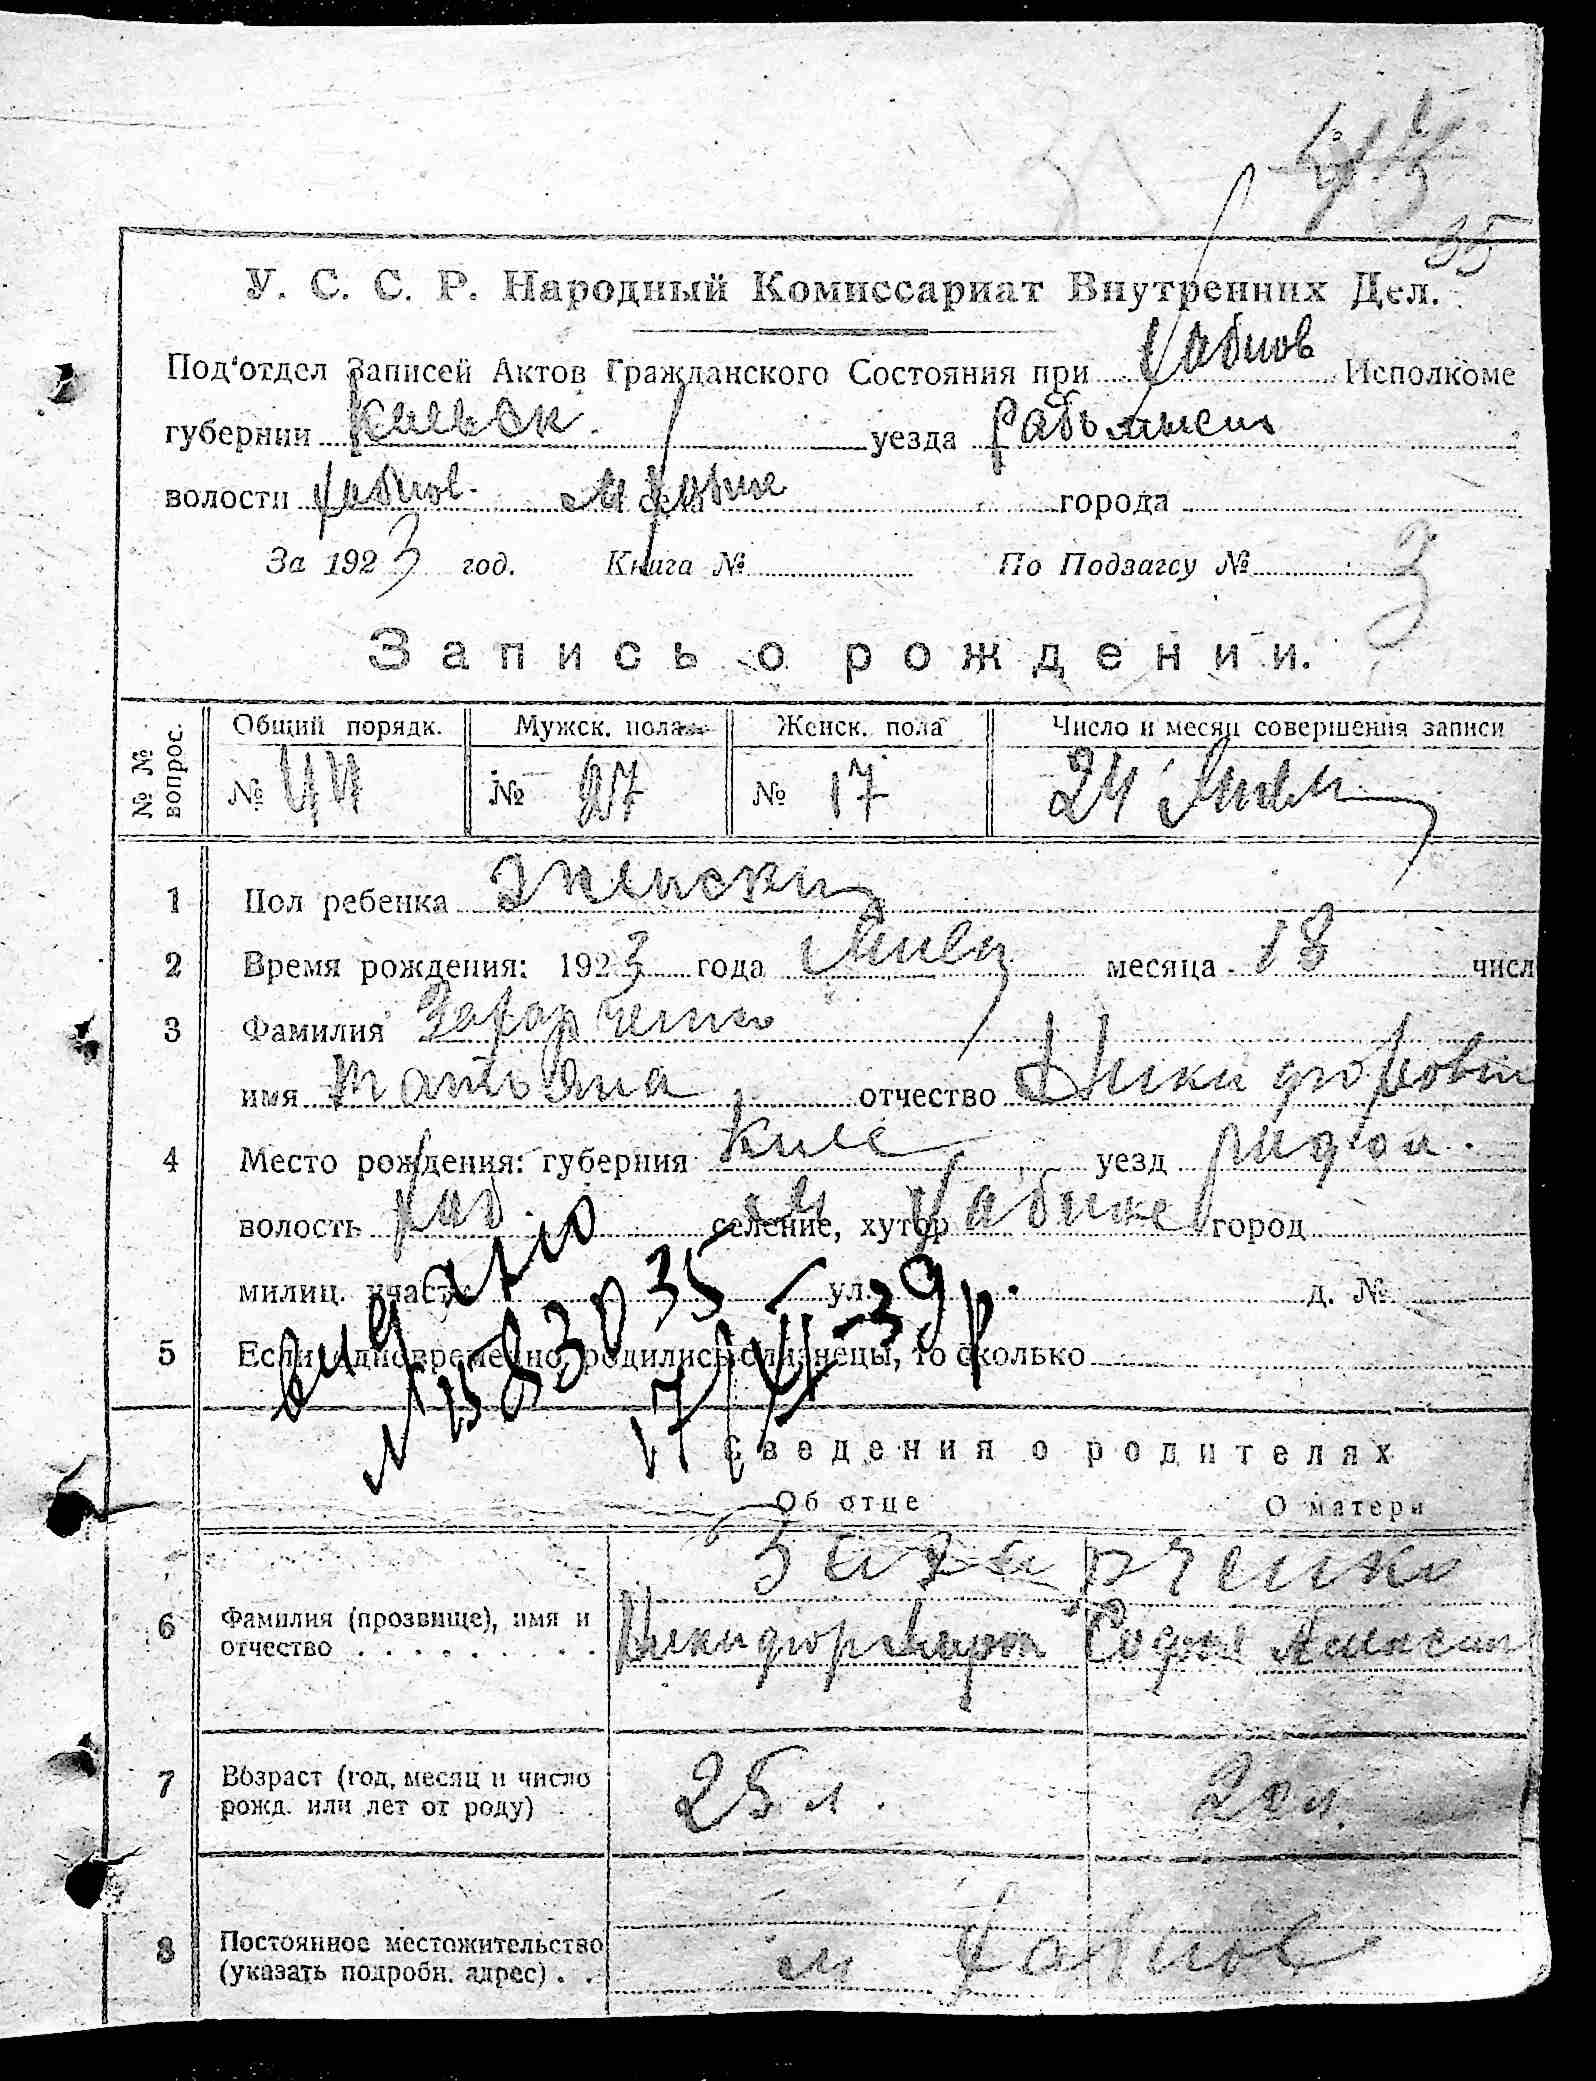 35
У. С. С. Р. Народный Комиссариат Внутренних Дел.
Под'отдел Записей Актов Гражданского Состояния при Хабнов Исполкоме
губернии Киевск. уезда Радомысл
волости Хабнов. м села Хабное города
За 1923 год. Книга № По Подзагсу № 3
Запись о рождении.
№№ вопрос. Общий порядк. Мужск. пола Женск. пола Число и месяц совершения записи
№ 44 № 27 № 17 24
1 Пол ребенка Женски
2 Время рождения: 1923 года месяца 18 числ
3 Фамилия Захарченко
имя Татьяна отчество Никифоровн
4 Место рождения: губерния Киев уезд Радом.
волость Хаб. м селение, хутор Хабное город
милиц. участк ул. д. №
видано
№ 1583035
5 Если одновременно родились близнецы, то сколько
17/VI-39 р.
Сведения о родителях
Об отце О матери
Захарченко
6 Фамилия (прозвище), имя и отчество . . . . . . . . . Никифор Софья Афанасии
7 Возраст (год, месяц и число рожд. или лет от роду) . . 25 л. 20 л.
8 Постоянное местожительство (указать подробн. адрес) . . м Хабное